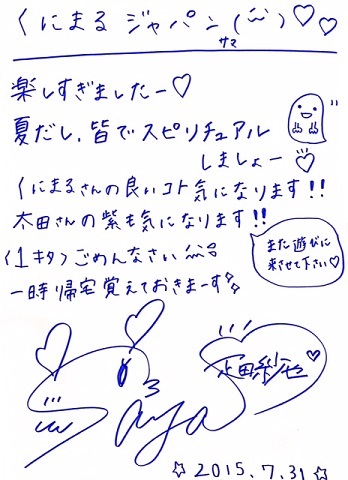 くにまる ジャパン(^^)♡♡
サマ
楽しすぎましたー♡
夏だし、皆でスピリチュアル
しましょー♡
くにまるさんの良いコト気になります!!
太田さんの紫も気になります!!
ごめんなさい
一時帰宅覚えておきまーす
また遊びに
来させて下さい♡
Saya
疋田紗也
☆2015.7.31☆